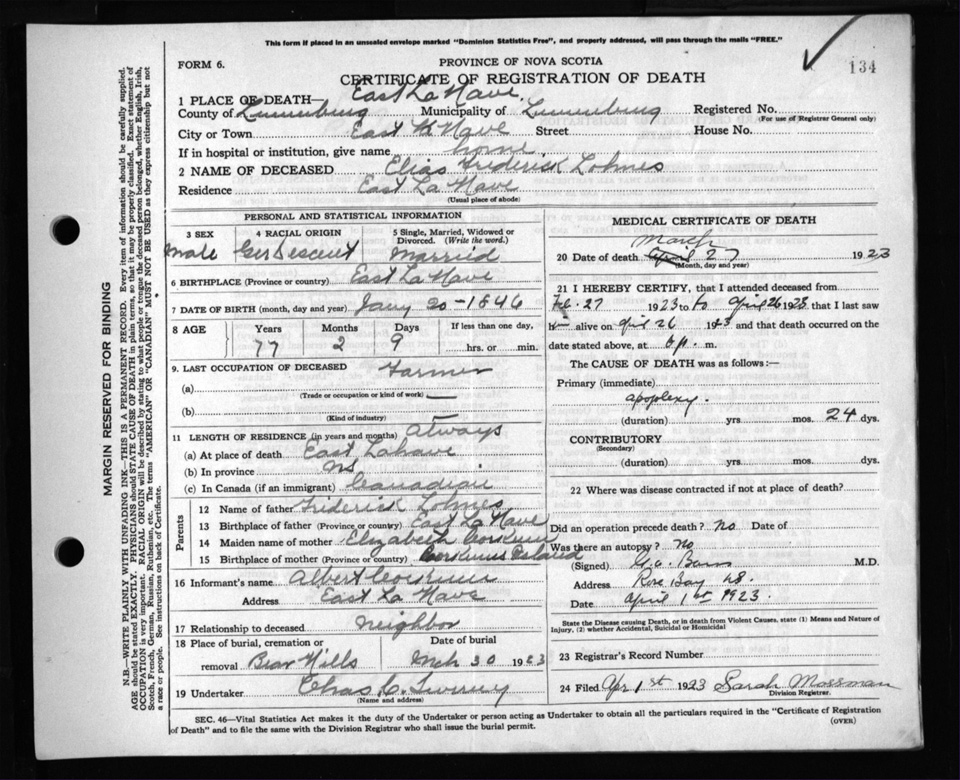 This form if placed in an unsealed envelope marked "Dominion Statistics Free", and properly addressed, will pass through the mails "FREE."
134
FORM 6.
PROVINCE OF NOVA SCOTIA
CERTIFICATE OF REGISTRATION OF DEATH
East La Have.
1 PLACE OF DEATH—
County of Lunenburg Municipality of Lunenburg Registered No.
(For use of Registrar General only)
City or Town East La Have Street House No.
If in hospital or institution, give name home
2 NAME OF DECEASED Elias Frederick Lohnes
Residence East La Have
(Usual place of abode)
PERSONAL AND STATISTICAL INFORMATION
3 SEX 4 RACIAL ORIGIN 5 Single, Married, Widowed or Divorced. (Write the word.)
Male Ger Descent Married
6 BIRTHPLACE (Province or country) East La Have
7 DATE OF BIRTH (month, day and year) Jany 20-1846
8 AGE Years Months Days If less than one day,
77 2 9 hrs. or min.
9. LAST OCCUPATION OF DECEASED Farmer
(a)
(Trade or occupation or kind of work)
(b)
(Kind of industry)
11 LENGTH OF RESIDENCE (in years and months) Always
(a) At place of death East Lahave
(b) In province NS
(c) In Canada (if an immigrant) Canadian
Parents
12 Name of father Friderick Lohnes
13 Birthplace of father (Province or country) East La Have
14 Maiden name of mother Elizabeth Corkum
15 Birthplace of mother (Province or country) Corkums Island
16 Informant's name Albert Corkum
Address East La Have
17 Relationship to deceased Neighbor
18 Place of burial, cremation or removal Date of burial
Mch 30 1923
19 Undertaker Chas C.
(Name and address)
MEDICAL CERTIFICATE OF DEATH
March
20 Date of death April 27 1923
(Month, day and year)
21 I HEREBY CERTIFY, that I attended deceased from
Feb. 27 1923 to April 26 1923 that I last saw
h alive on April 26 1923 and that death occurred on
date stated above, at 6 p. m.
The CAUSE OF DEATH was as follows:—
Primary (immediate)
apoplexy.
(duration) yrs. mos. 24 dys.
CONTRIBUTORY
(Secondary)
(duration) yrs. mos. dys.
22 Where was disease contracted if not at place of death?
Did an operation precede death? no Date of
Was there an autopsy? no
(Signed) M.D.
Address Rose Bay NS.
Date April 1st 1923.
State the Disease causing Death, or in death from Violent Causes, state (1) Means and Nature of
Injury, (2) whether Accidental, Suicidal or Homicidal
23 Registrar's Record Number
24 Filed Apr 1st 1923 Sarah Mossman
Division Registrar.
SEC. 46—Vital Statistics Act makes it the duty of the Undertaker or person acting as Undertaker to obtain all the particulars required in the "Certificate of Registration
of Death" and to file the same with the Division Registrar who shall issue the burial permit.
(OVER)
MARGIN RESERVED FOR BINDING
N.B.—WRITE PLAINLY WITH UNFADING INK—THIS IS A PERMANENT RECORD. Every item of information should be carefully supplied.
AGE should be stated EXACTLY. PHYSICIANS should STATE CAUSE OF DEATH in plain terms, so that it may be properly classified. Exact statement of
OCCUPATION is very important. RACIAL ORIGIN will be described by stating to what people or tongue the deceased person belonged, whether English, Irish,
Scotch, French, German, Russian, Ruthenian, etc. The terms "AMERICAN" OR "CANADIAN" MUST NOT BE USED as they express citizenship but not
a race or people. See instructions on back of Certificate.